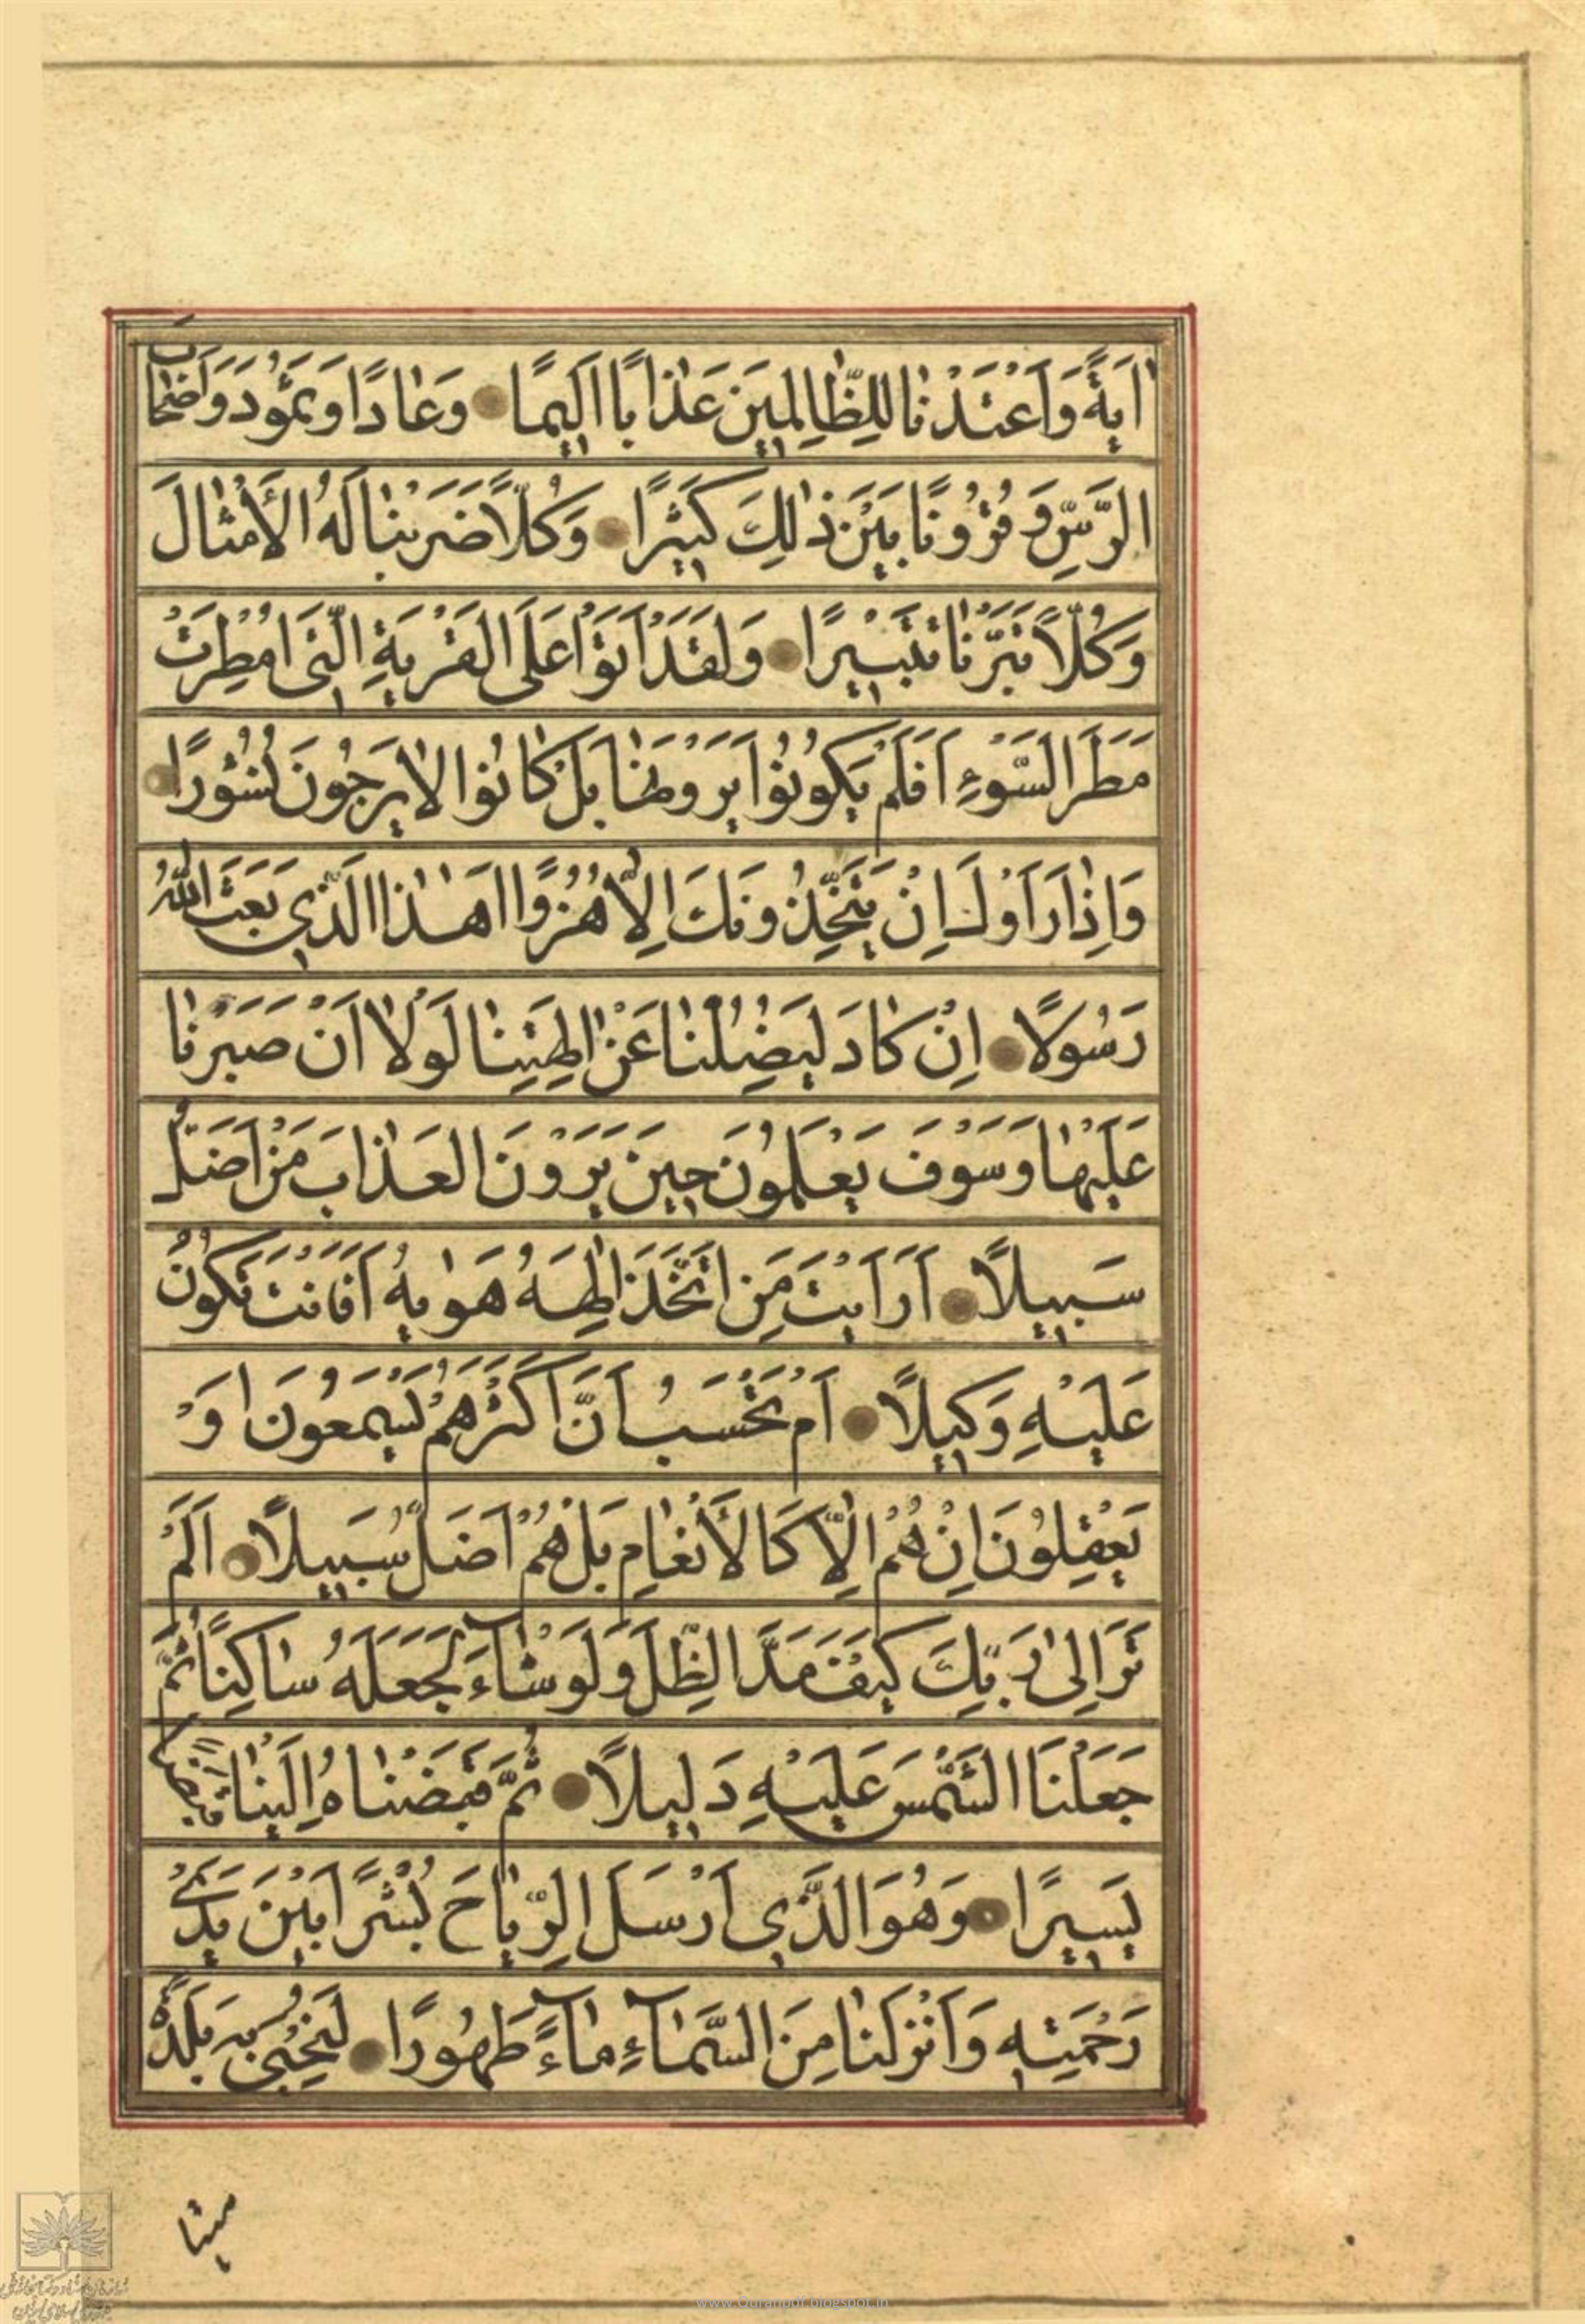 اٰيَةً وَاَعْتَدْنٰا لِلظّٰالِمِينَ عَذٰابًا اَلِيمًا وَعٰادًا وَثَمُودَ وَاَصْحٰابَ
الرَّسِّ وَقُرُونًا بَيْنَ ذٰلِكَ كَثِيرًا وَكُلًّا ضَرَبْنٰا لَهُ الْأَمْثٰالَ
وَكُلًّا تَبَّرْنٰا تَتْبِيرًا وَلَقَدْ اَتَوْا عَلَى الْقَرْيَةِ الَّتِى اُمْطِرَتْ
مَطَرَ السَّوْءِ اَفَلَمْ يَكُونُوا يَرَوْنَهٰا بَلْ كٰانُوا لاٰ يَرْجُونَ نُشُورًا
وَاِذٰا رَاَوْكَ اِنْ يَتَّخِذُونَكَ اِلّٰا هُزُوًا اَهٰذَا الَّذِي بَعَثَ اللّٰهُ
رَسُولًا اِنْ كٰادَ لَيُضِلُّنٰا عَنْ اٰلِهَتِنٰا لَوْلاٰ اَنْ صَبَرْنٰا
عَلَيْهٰا وَسَوْفَ يَعْلَمُونَ حِينَ يَرَوْنَ الْعَذٰابَ مَنْ اَضَلُّ
سَبِيلًا اَرَاَيْتَ مَنِ اتَّخَذَ اِلٰهَهُ هَوٰيهُ اَفَاَنْتَ تَكُونُ
عَلَيْهِ وَكِيلًا اَمْ تَحْسَبُ اَنَّ اَكْثَرَهُمْ يَسْمَعُونَ اَوْ
يَعْقِلُونَ اِنْ هُمْ اِلّٰا كَالْأَنْعٰامِ بَلْ هُمْ اَضَلُّ سَبِيلًا اَلَمْ
تَرَ اِلىٰ رَبِّكَ كَيْفَ مَدَّ الظِّلَّ وَلَوْ شٰاۤءَ لَجَعَلَهُ سٰاكِنًا ثُمَّ
جَعَلْنَا الشَّمْسَ عَلَيْهِ دَلِيلًا ثُمَّ قَبَضْنٰاهُ اِلَيْنٰا قَبْضًا
يَسِيرًا وَهُوَ الَّذِي اَرْسَلَ الرِّيٰاحَ بُشْرًا بَيْنَ يَدَيْ
رَحْمَتِهِ وَاَنْزَلْنٰا مِنَ السَّمٰاۤءِ مٰاۤءً طَهُورًا لِنُحْيِىَ بِهِ بَلْدَةً
ميتا
www.Quranpdf.blogspot.in